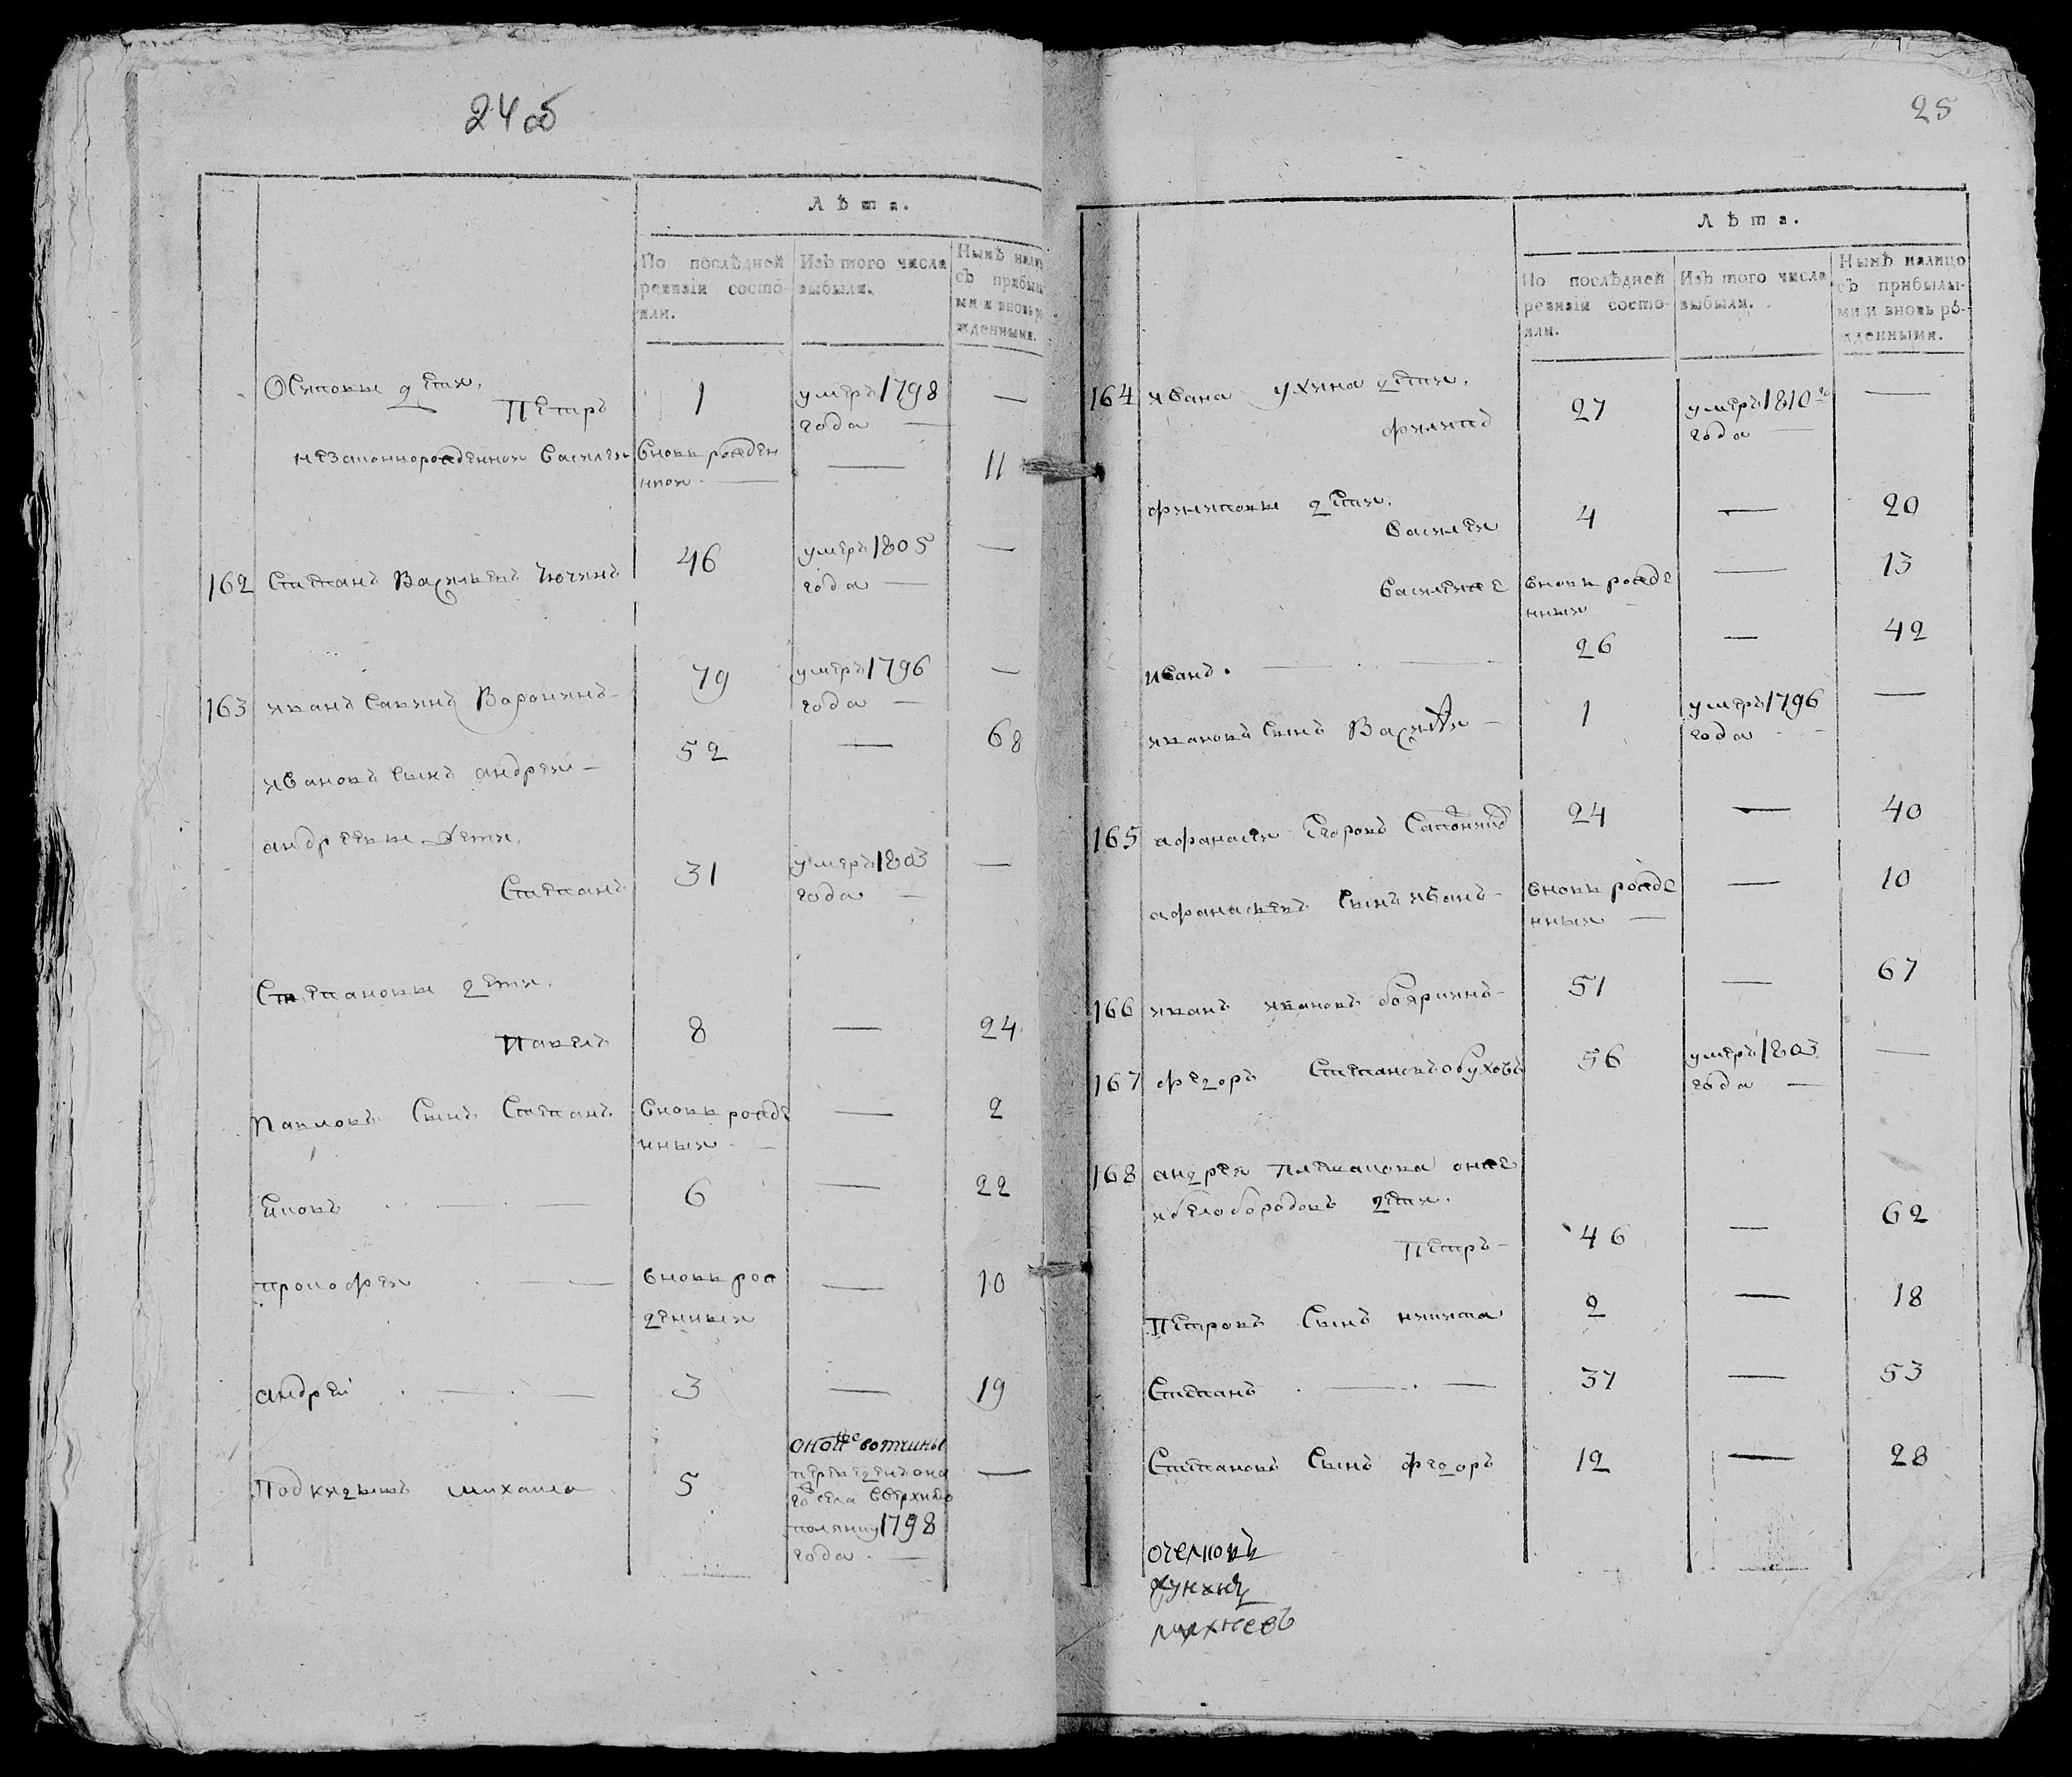 24 об
Лѣта.
По послѣдней ревизіи состояли.
Изъ того числа выбыли.
Нынѣ налицо съ прибылыми и вновь рожденными.
Осиповы дети,
Петръ 1 умеръ 1798 —
года —
незаконнорожденной Василеи вновь рожден — 11
ной —
162 Степанъ Васильевъ Чючинъ 46 умеръ 1805 —
года —
163 иванъ Савинъ Воронинъ 79 умеръ 1796 —
года —
ивановъ сынъ андреи — 52 — 68
андреевы дети,
Степанъ 31 умеръ 1803 —
года —
Степановы дети,
Павелъ 8 — 24
Павловъ Сынъ Степанъ вновь рожде — 2
нныи —
6 — 22
прокофеи — вновь рож — 10
денныи
андрей — 3 — 19
Подкидышъ михаила 5 оной же вотчины —
переведенъ она
го села верхнею
поляну 1798
года —
25
Лѣта.
По послѣдней ревизіи состояли.
Изъ того числа выбыли.
Нынѣ налицо съ прибылыми и вновь рожденными.
164 ивана ухина дети,
филипъ 27 умеръ 1810го —
года —
филиповы дети,
василеи 4 — 20
василеиже вновь рожде — 13
нныи
иванъ. — 26 — 42
ивановъ сынъ Василеи — 1 умеръ 1796 —
года —
165 афанасеи Егоровъ 24 — 40
афанасьевъ сынъ иванъ — вновь рожде — 10
нныи —
166 иванъ ивановъ бояринъ — 51 — 67
167 федоръ Степановъ обуховъ 56 умеръ 1803 —
года —
168 андрея Плешакова онже
ибелобородовъ дети.
Петръ — 46 — 62
Петровъ Сынъ никита 2 — 18
Степанъ — 37 — 53
Степановъ Сынъ федоръ 12 — 28